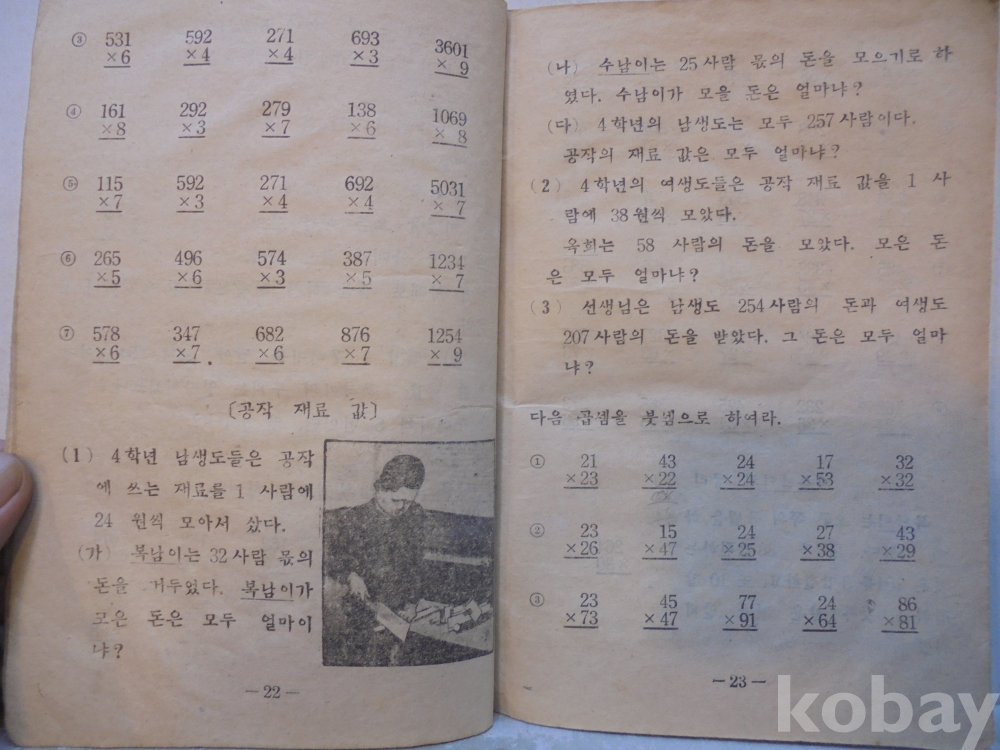 ③ 531 592 271 693 3601
×6 ×4 ×4 ×3 × 9
④ 161 292 279 138 1069
×8 ×3 ×7 ×6 × 8
⑤ 115 592 271 692 5031
×7 ×3 ×4 ×4 × 7
⑥ 265 496 574 387 1234
×5 ×6 ×3 ×5 × 7
⑦ 578 347 682 876 1254
×6 ×7 ×6 ×7 × 9
〔공작 재료 값〕
(1) 4학년 남생도들은 공작
에 쓰는 재료를 1 사람에
24 원씩 모아서 샀다.
(가) 복남이는 32사람 몫의
돈을 거두었다. 복남이가
모은 돈은 모두 얼마이
냐?
—22—
(나) 수남이는 25사람 몫의 돈을 모으기로 하
였다. 수남이가 모을 돈은 얼마냐?
(다) 4학년의 남생도는 모두 257사람이다.
공작의 재료 값은 모두 얼마냐?
(2) 4학년의 여생도들은 공작 재료 값을 1 사
람에 38원씩 모았다.
옥희는 58 사람의 돈을 모았다. 모은 돈
은 모두 얼마냐?
(3) 선생님은 남생도 254사람의 돈과 여생도
207사람의 돈을 받았다. 그 돈은 모두 얼마
냐?
다음 곱셈을 붓셈으로 하여라.
① 21 43 24 17 32
×23 ×22 ×24 ×53 ×32
② 23 15 24 27 43
×26 ×47 ×25 ×38 ×29
③ 23 45 77 24 86
×73 ×47 ×91 ×64 ×81
—23—
kobay